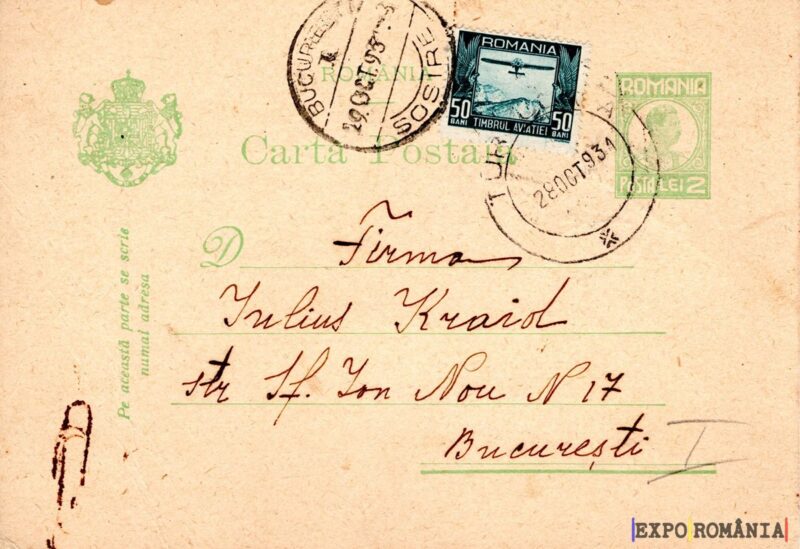 BUCUREȘTI
29 OCT 93
SOSIRE
ROMÂNIA
ROMANIA
50 BANI
TIMBRUL AVIAȚIEI
50 BANI
ROMANIA
POSTA LEI 2
TUR
28 OCT 931
Carta Postala
Pe această parte se scrie
numai adresa
D Firma
Iulius Kraid
str Sf. Ion Nou N 17
București
I
EXPO ROMÂNIA